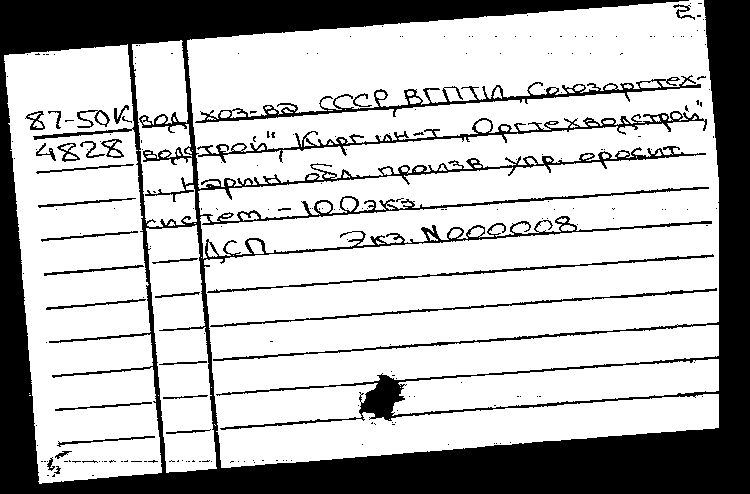 2.
87-50К вод. хоз-ва СССР, ВГПТИ „Союзоргтех-
4828 водстрой", Кирг. ин-т „Оргтехводстрой",
Нарын. обл. произв. упр. оросит.
систем. - 100экз.
ДСП. Экз. N000008